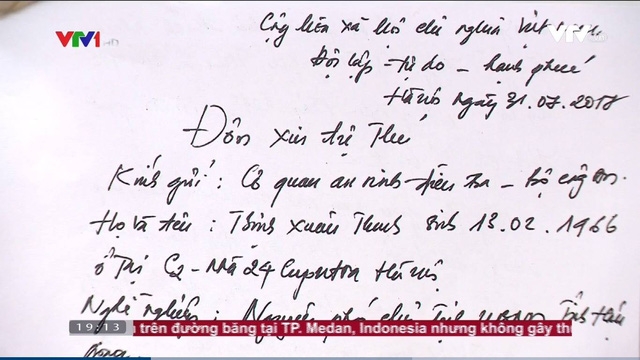 VTV1
VTV
Cộng hòa xã hội chủ nghĩa Việt Nam
Độc lập - tự do - hạnh phúc
Hà Nội ngày 31.07.2017
Đơn xin tự thú
Kính gửi : Cơ quan an ninh điều tra - Bộ công an.
Họ và tên : Trịnh Xuân Thanh sinh 13.02.1966
ở tại C2 - Nhà 24 Ciputra Hà Nội
Nghề nghiệp : Nguyên phó chủ tịch UBND Tỉnh Hậu
Giang
19:13 trên đường băng tại TP. Medan, Indonesia nhưng không gây thi